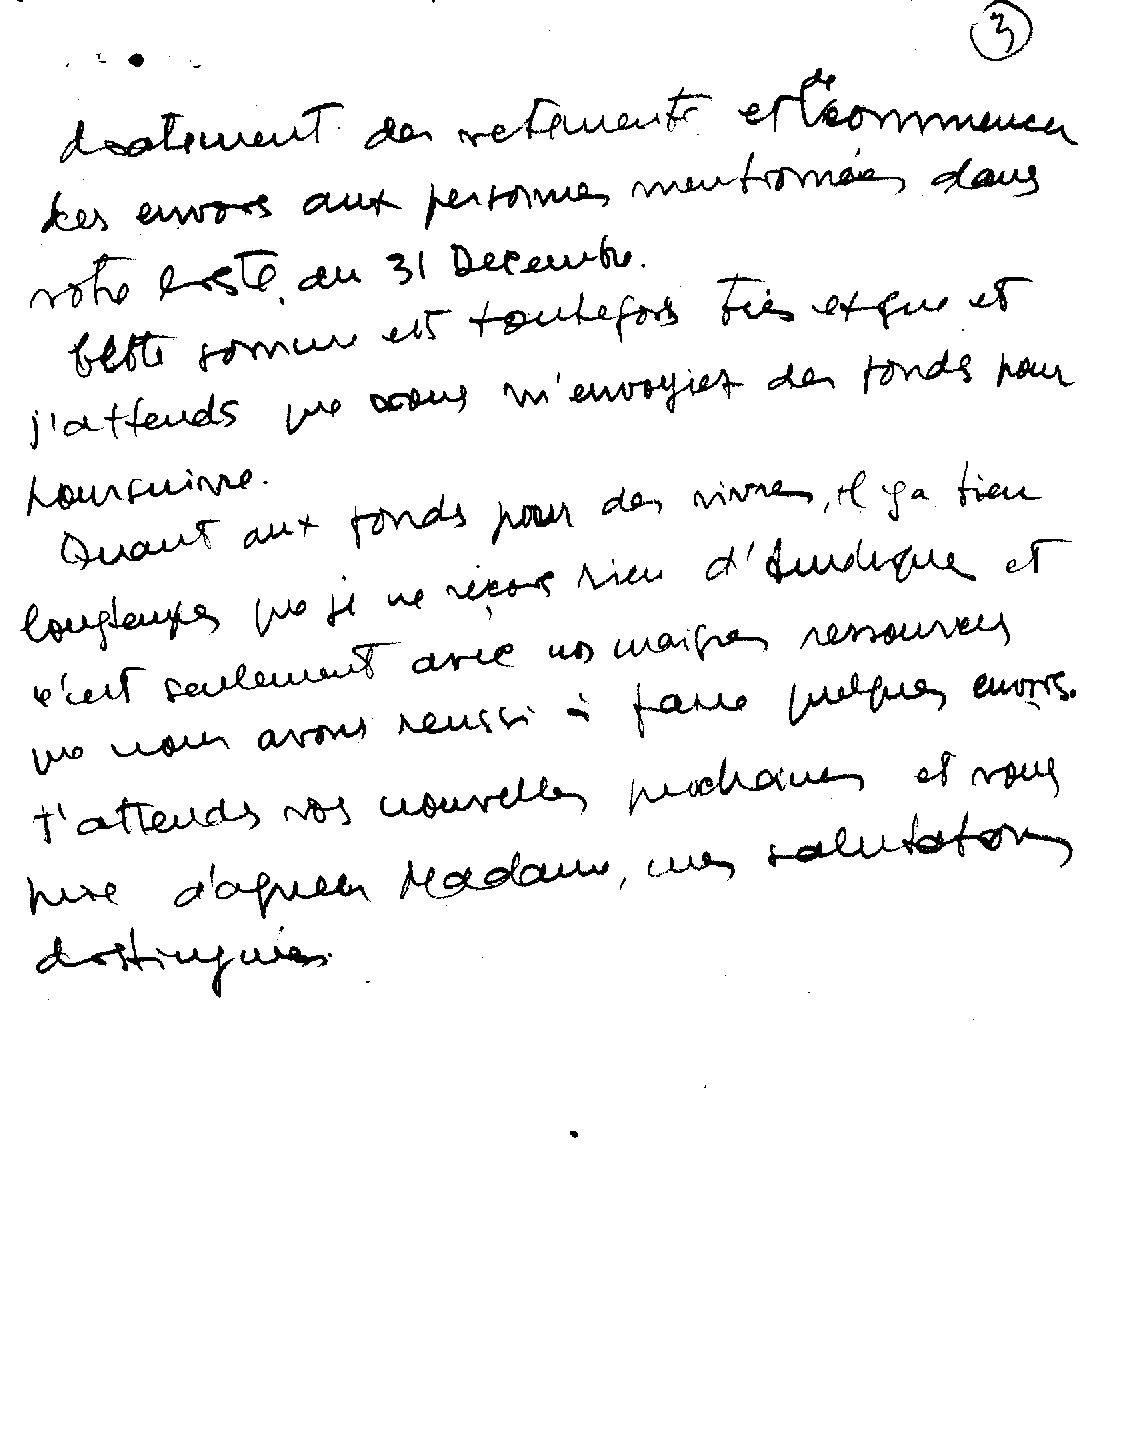 3
des vetements et de commencer
les envois aux personnes mentionnées dans
votre liste, du 31 Decembre.
Cette somme est toutefois très exigue et
j'attends que vous m'envoyiez des fonds pour
poursuivre.
Quant aux fonds pour des vivres, il y a bien
longtemps que je ne reçois rien d'Amérique et
c'est seulement avec nos maigres ressources
que nous avons reussi à faire quelques envois.
J'attends vos nouvelles prochaines et vous
prie d'agréer Madame, mes salutations
distinguées.